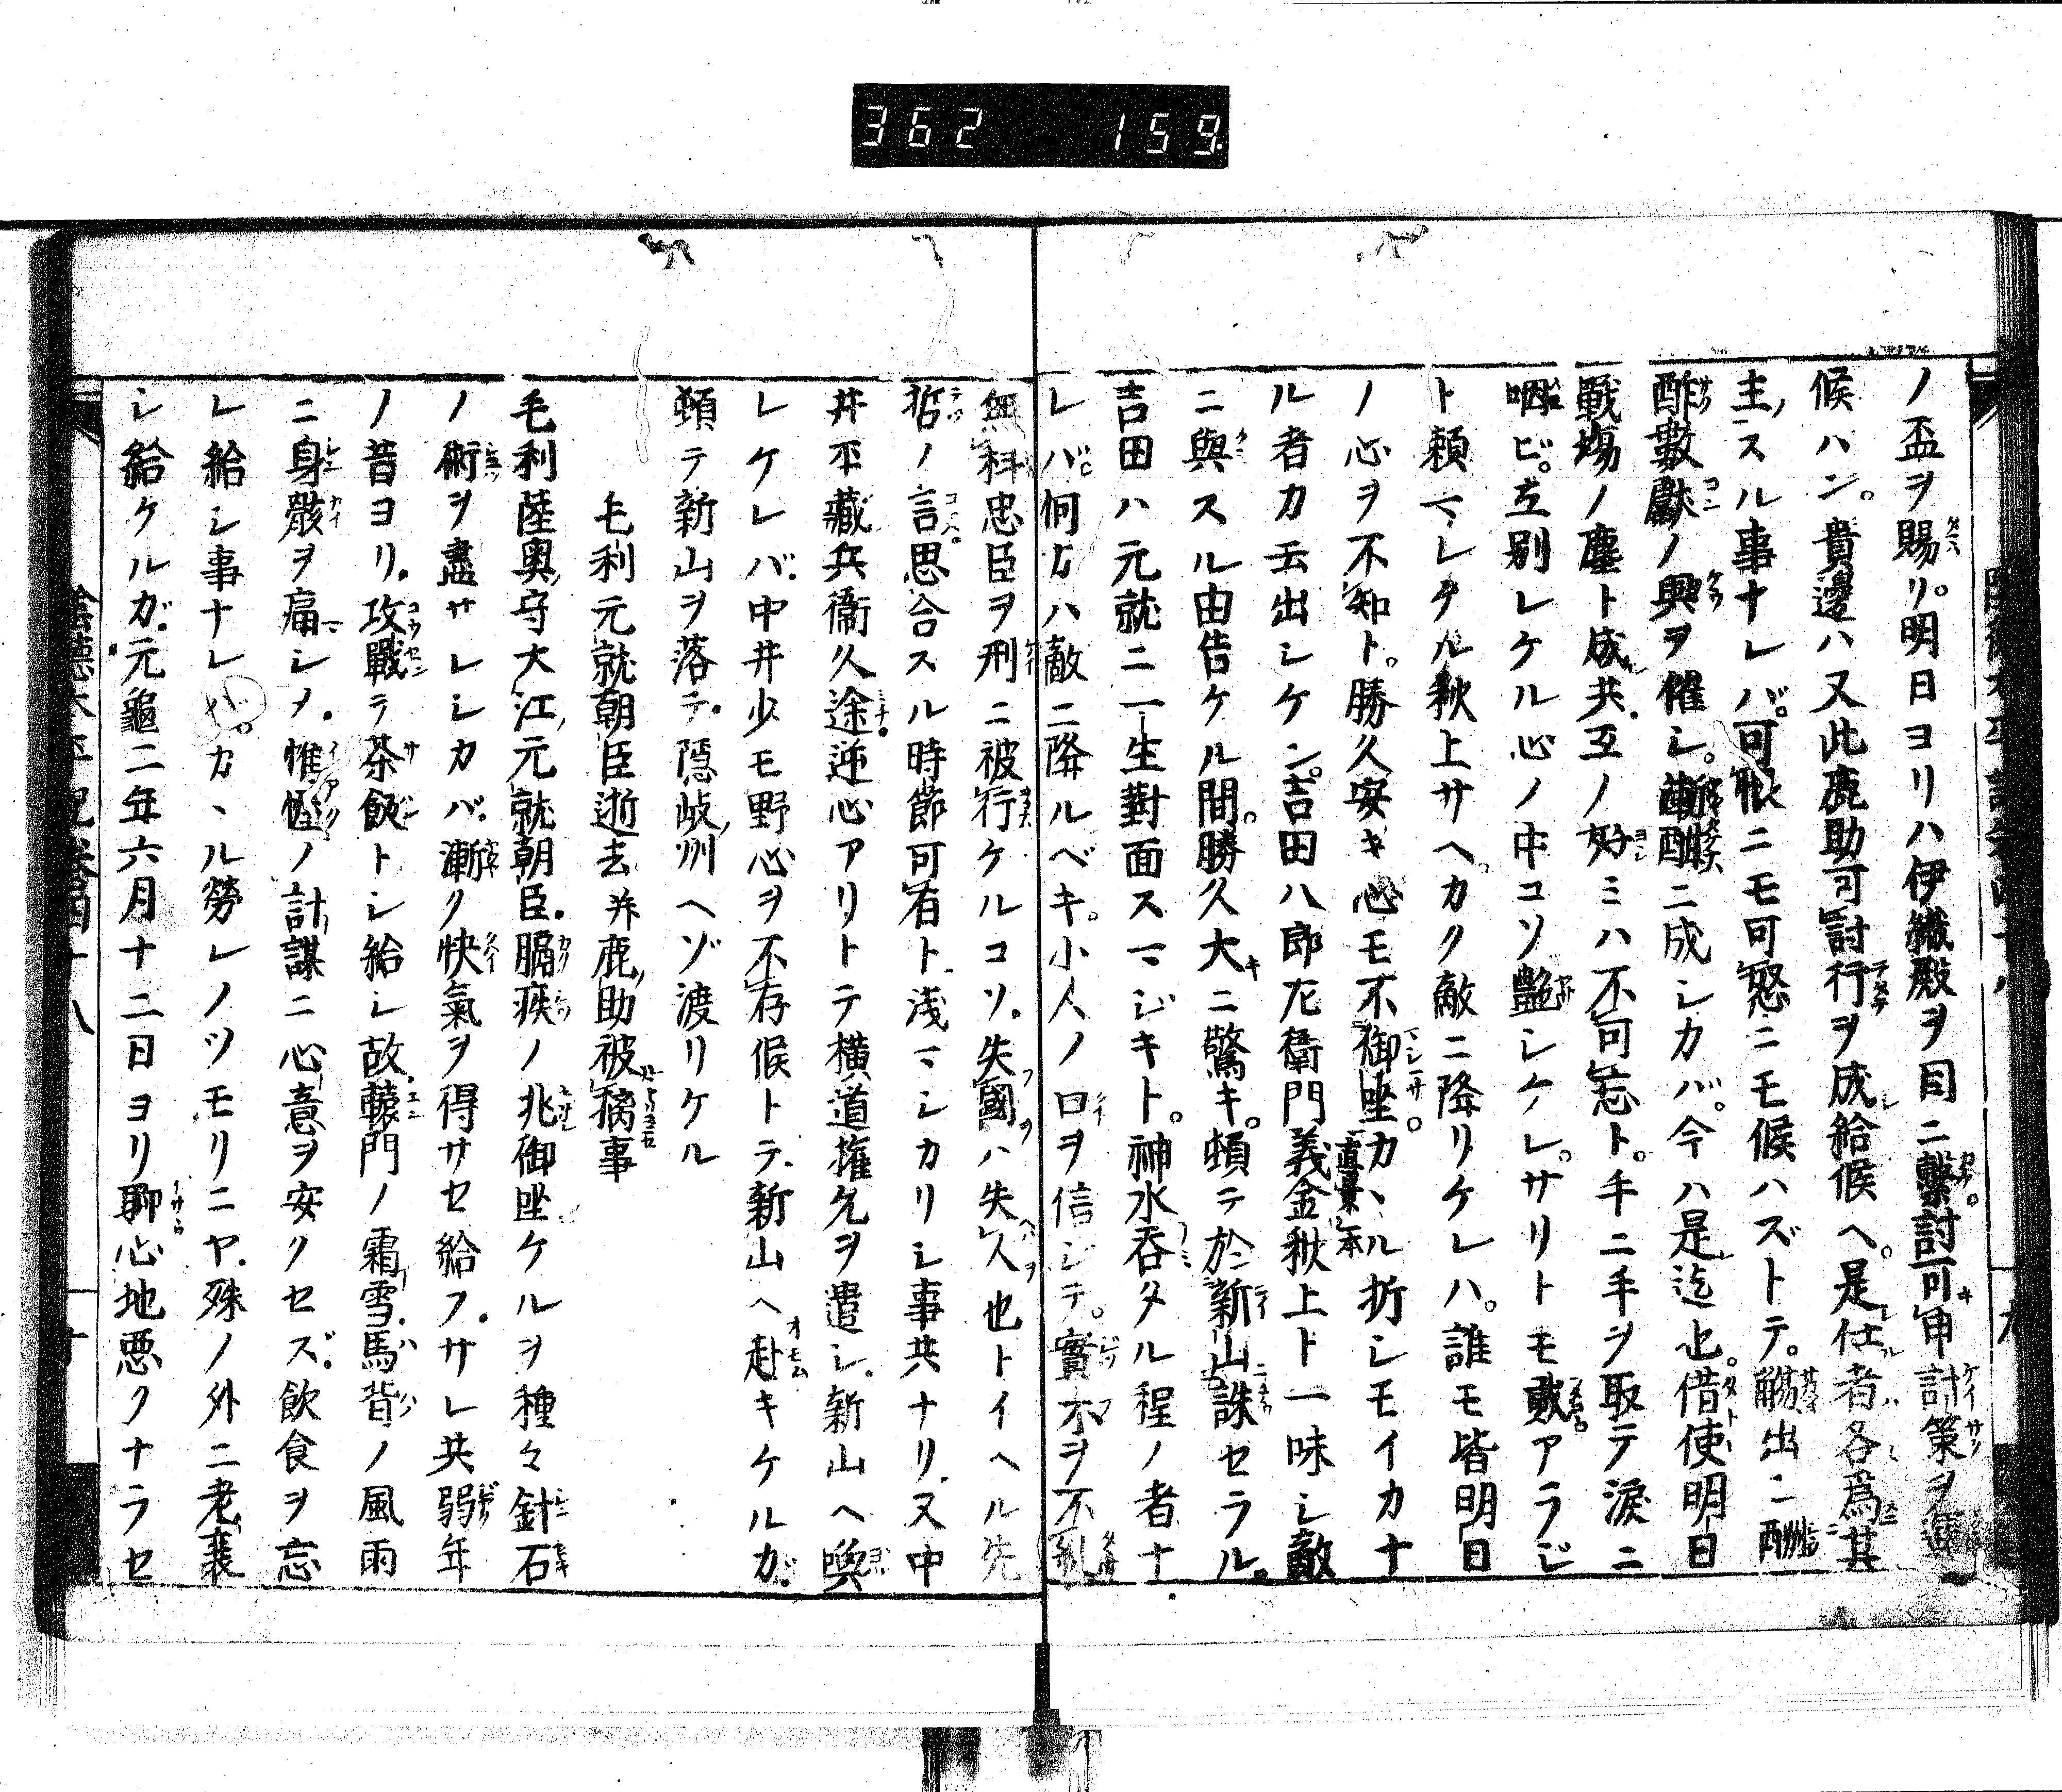 362 159
ノ盃ヲ賜リ。明日ヨリハ伊織殿ヲ目ニ繫。討可申計策ヲ運
候ハン。貴邊ハ又此鹿助可討行ヲ成給候ヘ。是仕者各爲其
主スル事ナレバ。可恨ニモ可怒ニモ候ハズトテ。觴出シ酬
酢數獻ノ興ヲ催シ。漸酣ニ成シカバ。今ハ是迄也。借使明日
戰塲ノ塵ト成共。互ノ好ミハ不可忘ト。手ニ手ヲ取テ淚ニ
咽ビ。立別レケル心ノ中コソ艶シケレ。サリトモ敵アラジ
ト頼マレタル秋上サヘ。カク敵ニ降リケレハ。誰モ皆明日
ノ心ヲ不知ト。勝久安キ心モ不御坐。カヽル折シモイカナ
ル者カ云出シケン。吉田八郎左衛門義金秋上ト一味シ敵
ニ與スル由告ケル間。勝久大ニ驚キ。頓テ於新山誅セラル。
吉田ハ元就ニ一生對面スマジキト。神水呑タル程ノ者ナ
レバ。何カハ敵ニ降ルベキ。小人ノ口ヲ信シテ。實不ヲ不糺
無科忠臣ヲ刑ニ被行ケルコソ。失國ハ失人也トイヘル先
哲ノ言思合スル時節可有ト。浅マシカリシ事共ナリ。又中
井平藏兵衞久途逆心アリトテ横道權允ヲ遣シ。新山ヘ喚
レケレバ。中井少モ野心ヲ不存候トテ。新山ヘ赴キケルガ。
頓テ新山ヲ落テ。隱岐州ヘゾ渡リケル
毛利元就朝臣逝去并鹿助被擒事
毛利陸奥守大江元就朝臣。膈疾ノ兆御座ケルヲ種々針石
ノ術ヲ盡サレシカバ。漸ク快氣ヲ得サセ給フ。サレ共弱年
ノ昔ヨリ。攻戰ヲ茶飯トシ給シ故。轅門ノ霜雪。馬背ノ風雨
ニ身骸ヲ痛シメ。帷幄ノ計謀ニ心意ヲ安クセズ。飲食ヲ忘
レ給シ事ナレハ。カヽル勞レノツモリニヤ。殊ノ外ニ老衰
シ給ケルガ。元龜二年六月十二日ヨリ聊心地悪クナラセ
陰德太平記卷四十八